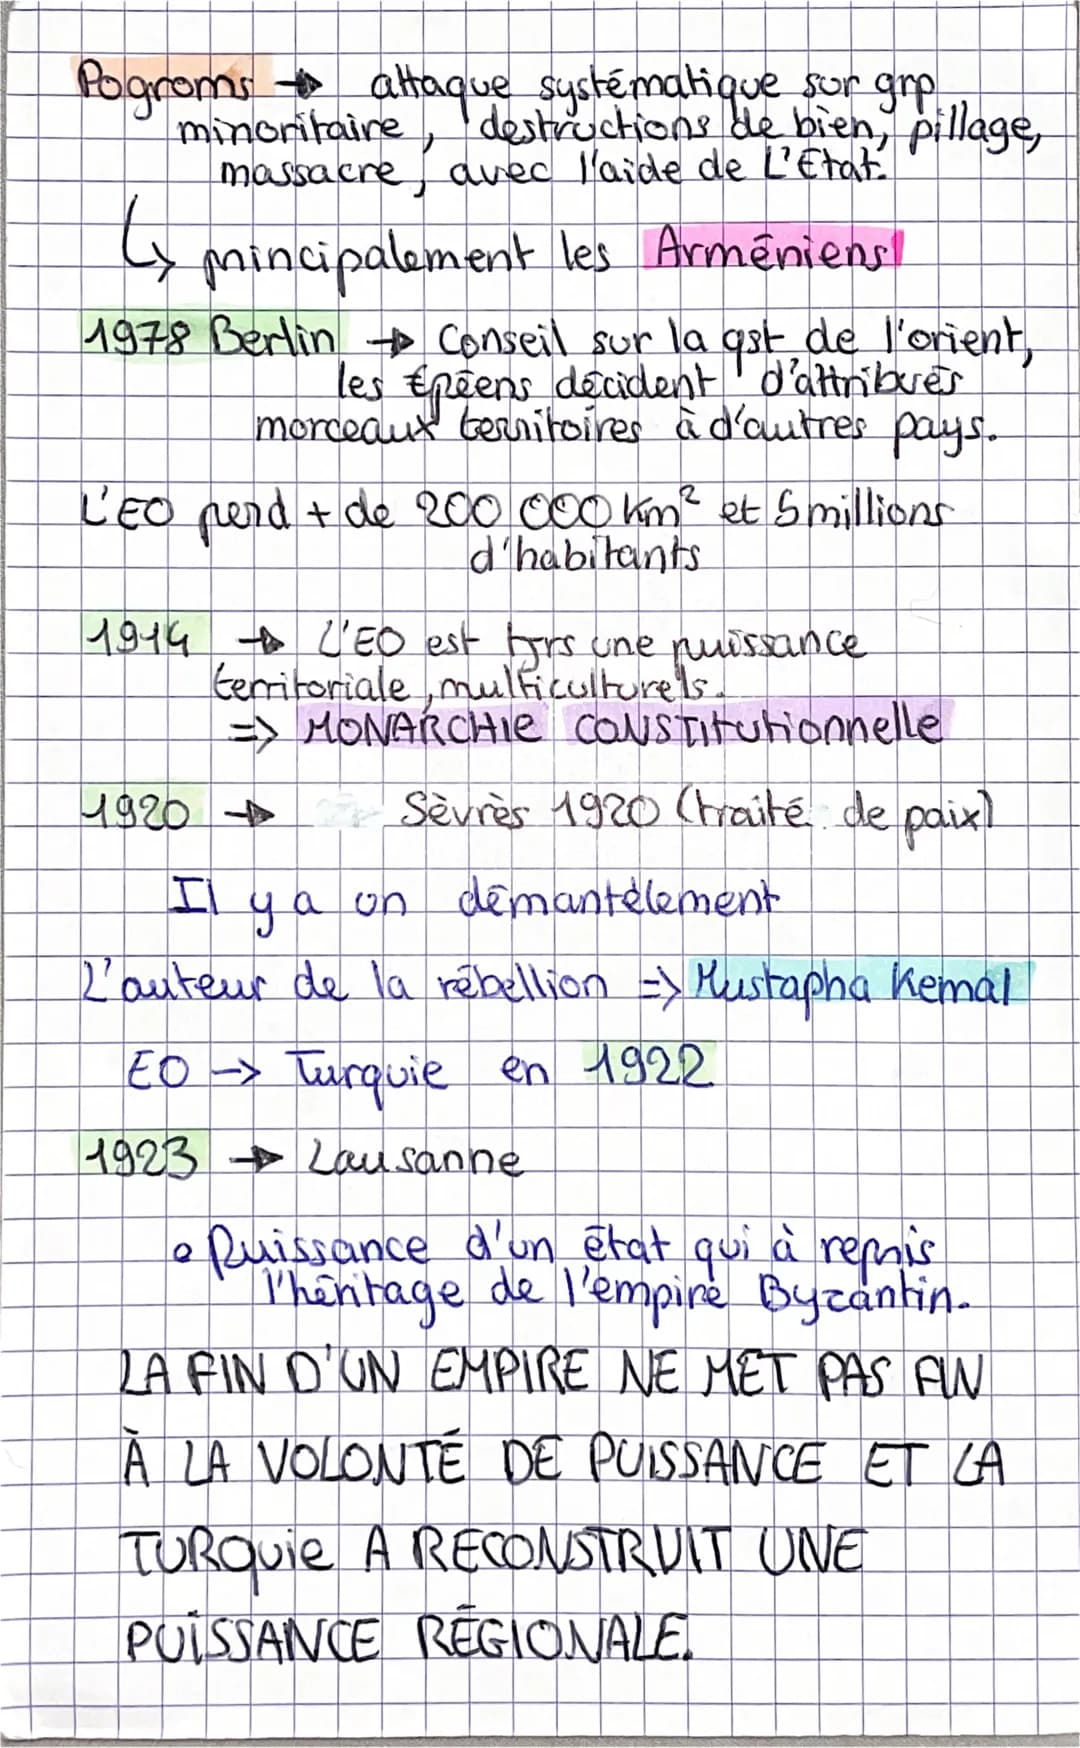 Pogroms → attaque systématique sur grp
minoritaire, destructions de bien, pillage,
massacre, avec l'aide de L'Etat.
↳ principalement les Arméniens
1978 Berlin → Conseil sur la qst de l'orient,
les €péens décident d'attribués
morceaux territoires à d'autres pays.
L'EO perd + de 200 000 km² et 5 millions
d'habitants
1914 → L'EO est tjrs une puissance
territoriale, multiculturels.
=> MONARCHIE CONSTITUTIONNELLE
1920 → Sèvrès 1920 (traité de paix)
Il y a un démantèlement
L'auteur de la rébellion => Mustapha Kemal
EO → Turquie en 1922
1923 → Lausanne
• Puissance d'un état qui à repris
l'héritage de l'empire Byzantin.
LA FIN D'UN EMPIRE NE MET PAS FIN
À LA VOLONTÉ DE PUISSANCE ET LA
TURQUIE A RECONSTRUIT UNE
PUISSANCE RÉGIONALE.